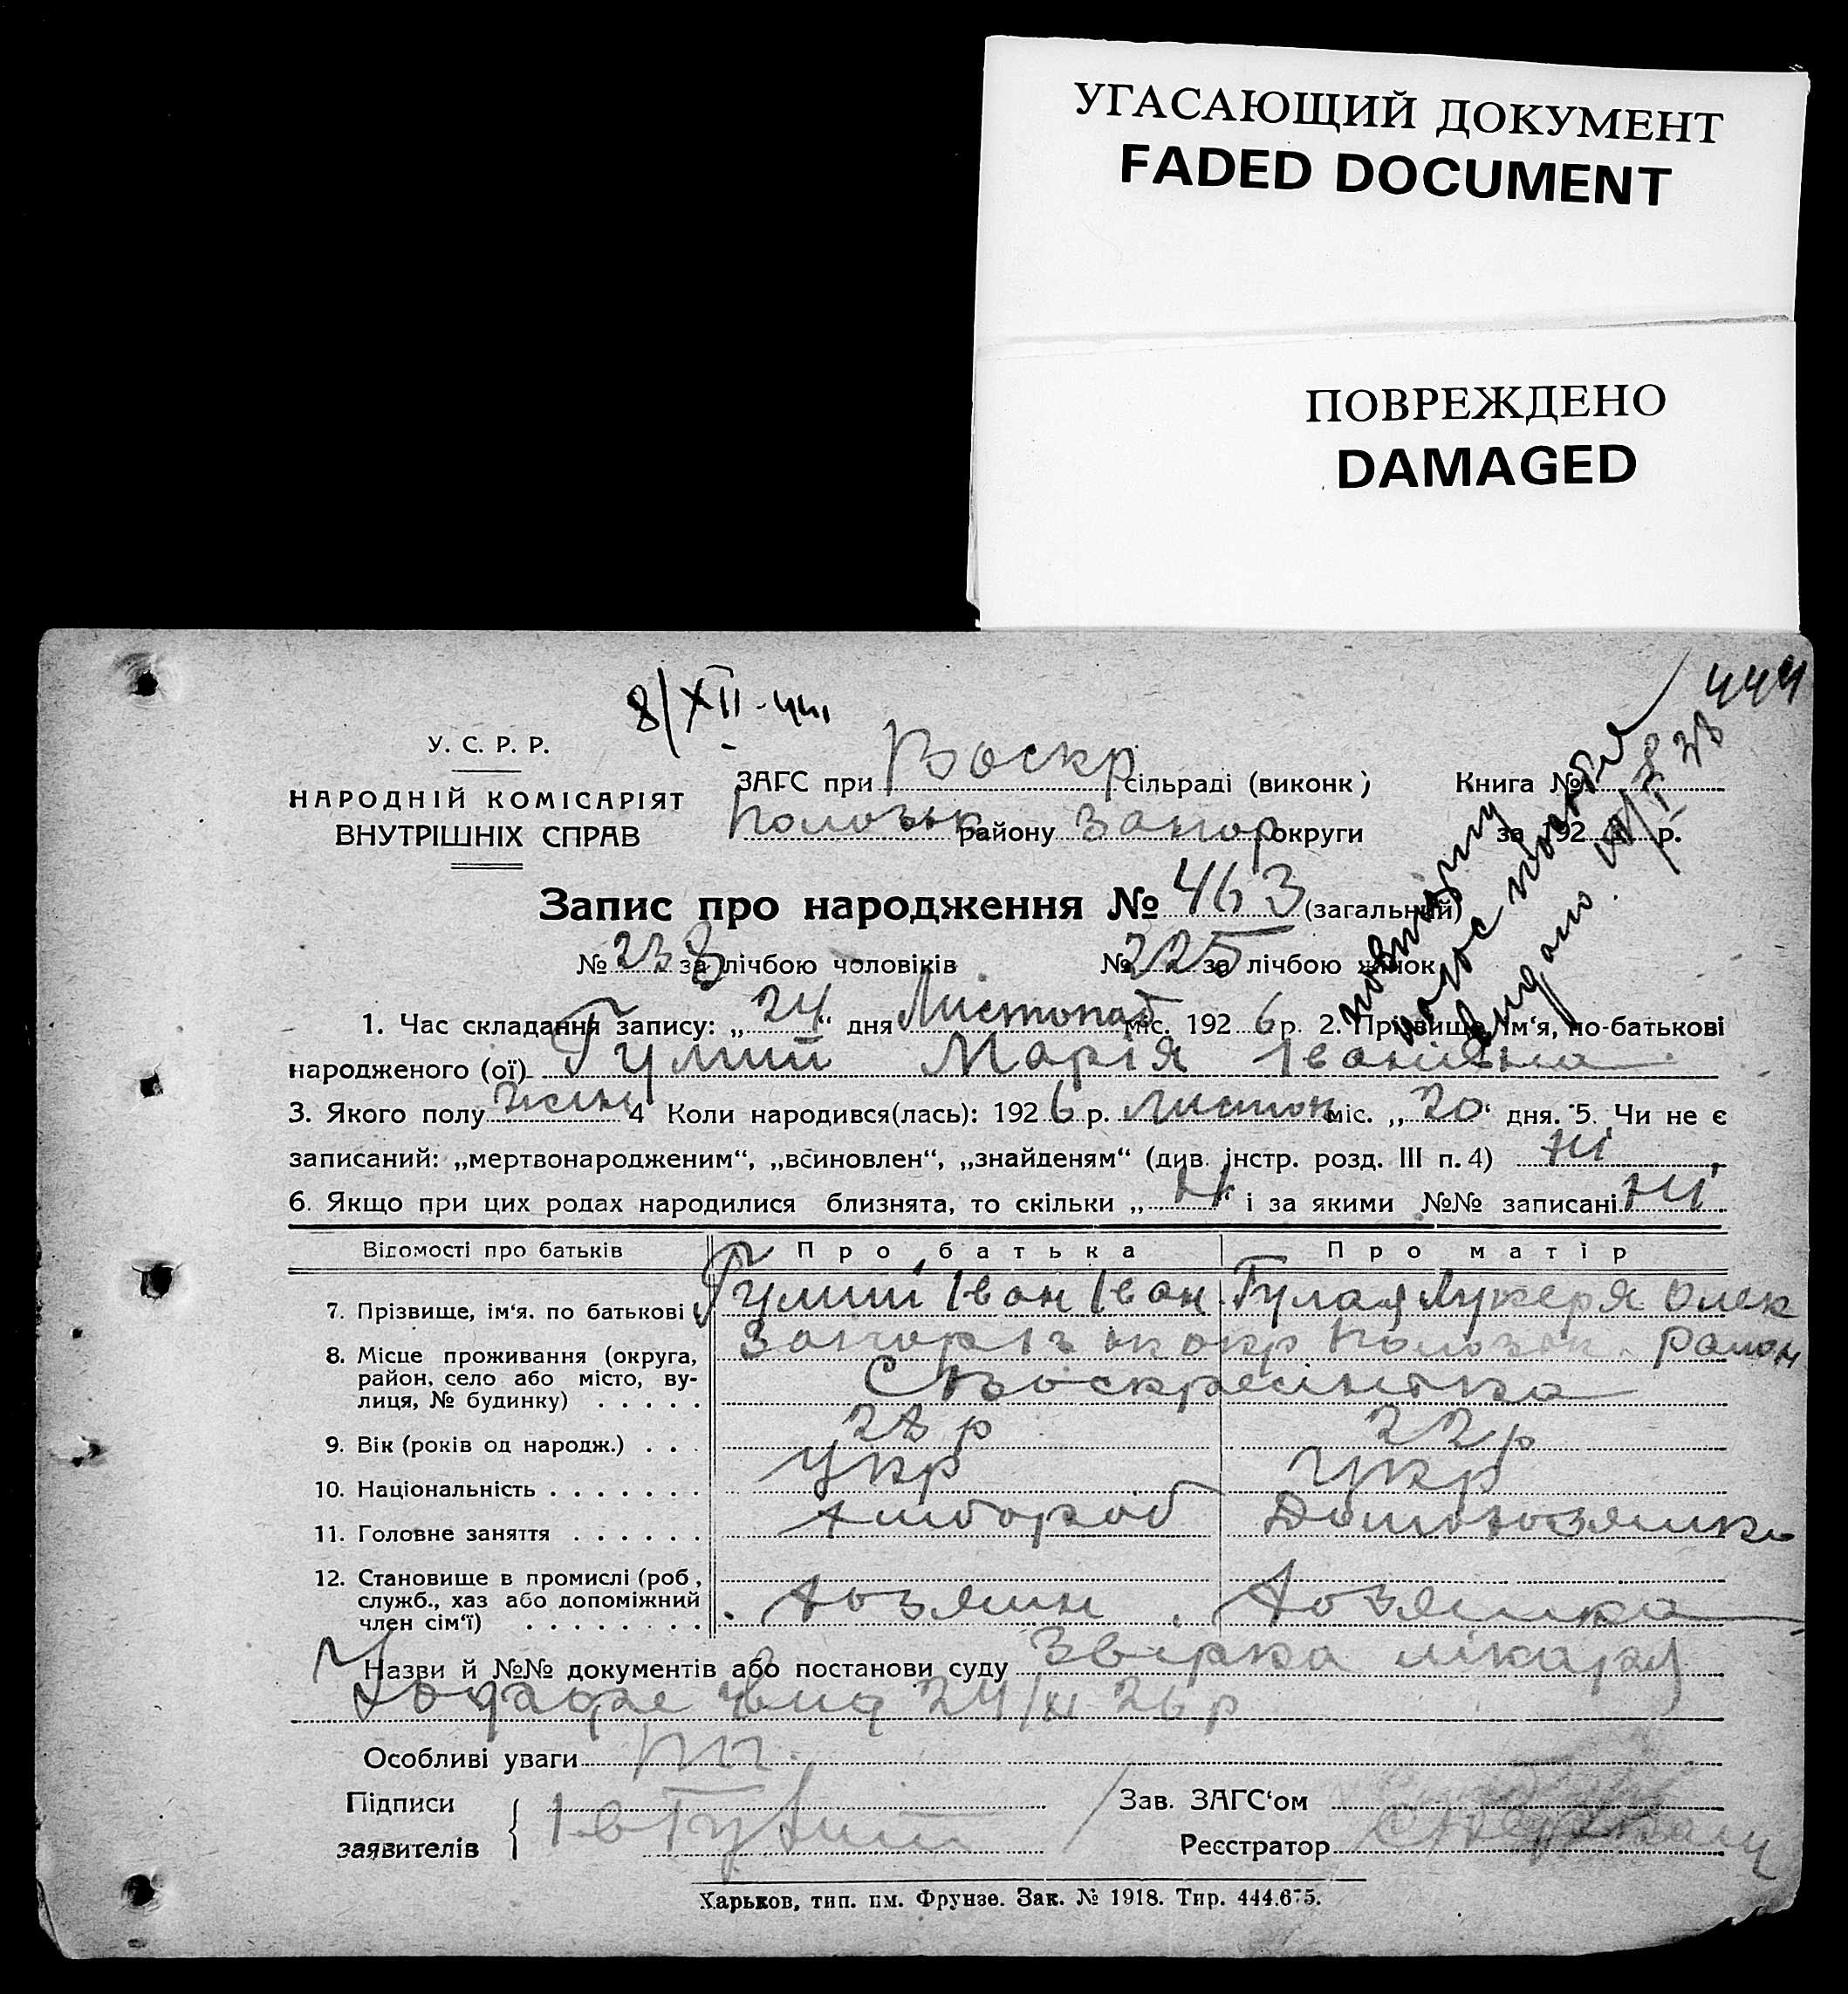 УГАСАЮЩИЙ ДОКУМЕНТ
FADED DOCUMENT
ПОВРЕЖДЕНО
DAMAGED
444
8/XII-44
У. С. Р. Р.
НАРОДНІЙ КОМІСАРІЯТ
ВНУТРІШНІХ СПРАВ
ЗАГС при Воскр сільраді (виконк) Книга №
району Запор округи за 192 р.
Запис про народження № 463 (загальний)
№ 238 за лічбою чоловіків № 225 за лічбою жінок
1. Час складання запису: „24“ дня Листопад міс. 1926 р. 2. Прізвище, ім‘я, по-батькові
народженого (ої) Гулий Марія Іванівна
3. Якого полу жін 4 Коли народився(лась): 1926 р. листоп міс. „20“ дня. 5. Чи не є
записаний: „мертвонародженим“, „всиновлен“, „знайденям“ (див. інстр. розд. III п. 4) ні
6. Якщо при цих родах народилися близнята, то скільки „ “ і за якими №№ записані ні
Відомості про батьків Про батька Про матір
7. Прізвище, ім‘я. по батькові Гулий Іван Іван Гулая Лукеря Олек
8. Місце проживання (округа, район, село або місто, вулиця, № будинку) . . . . . район
С Воскресінка
9. Вік (років од народж.) . . . 28 р 22 р
10. Національність . . . . . . . Укр Укр
11. Головне заняття . . . . . . Хлібороб Домохозяйка
12. Становище в промислі (роб, служб., хаз або допоміжний член сім‘ї) . . . . . . . . Хозяин Хозяйка
Назви й №№ документів або постанови суду лікаря
24/XI 26 р
Особливі уваги
Підписи заявителів Ів Гулий
Зав. ЗАГС‘ом
Реєстратор
Харьков, тип. им. Фрунзе. Зак. № 1918. Тир. 444.675.